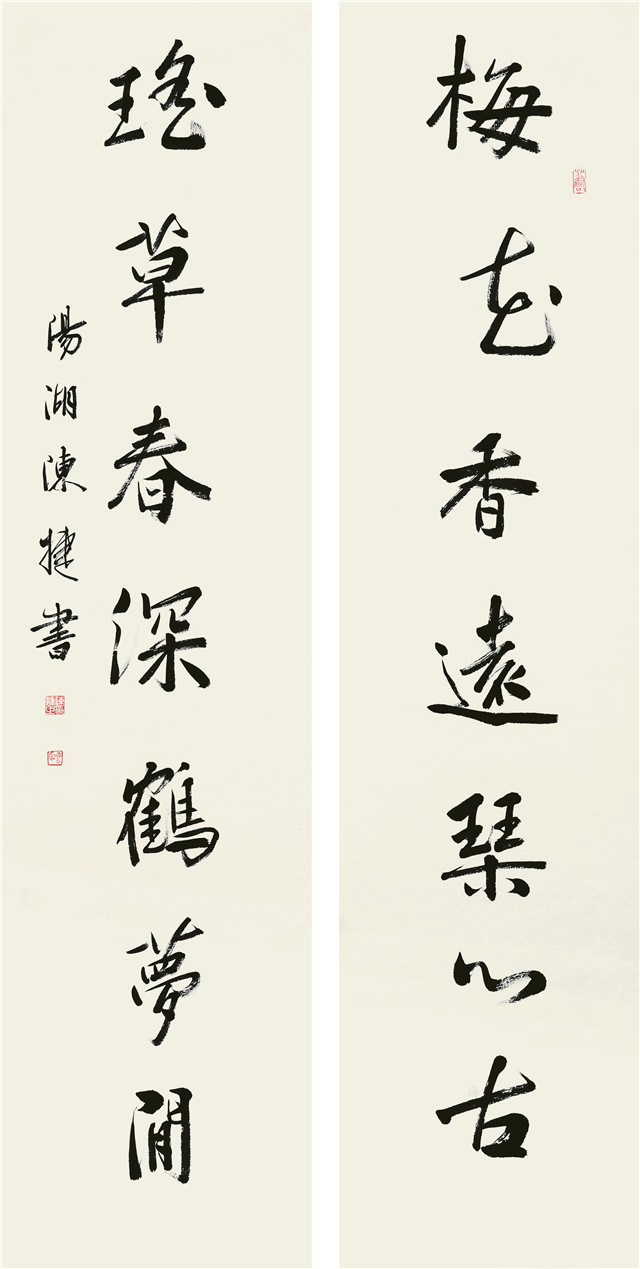 梅花香遠琴心古
瑤草春深鶴夢閒
陽湖陳捷書